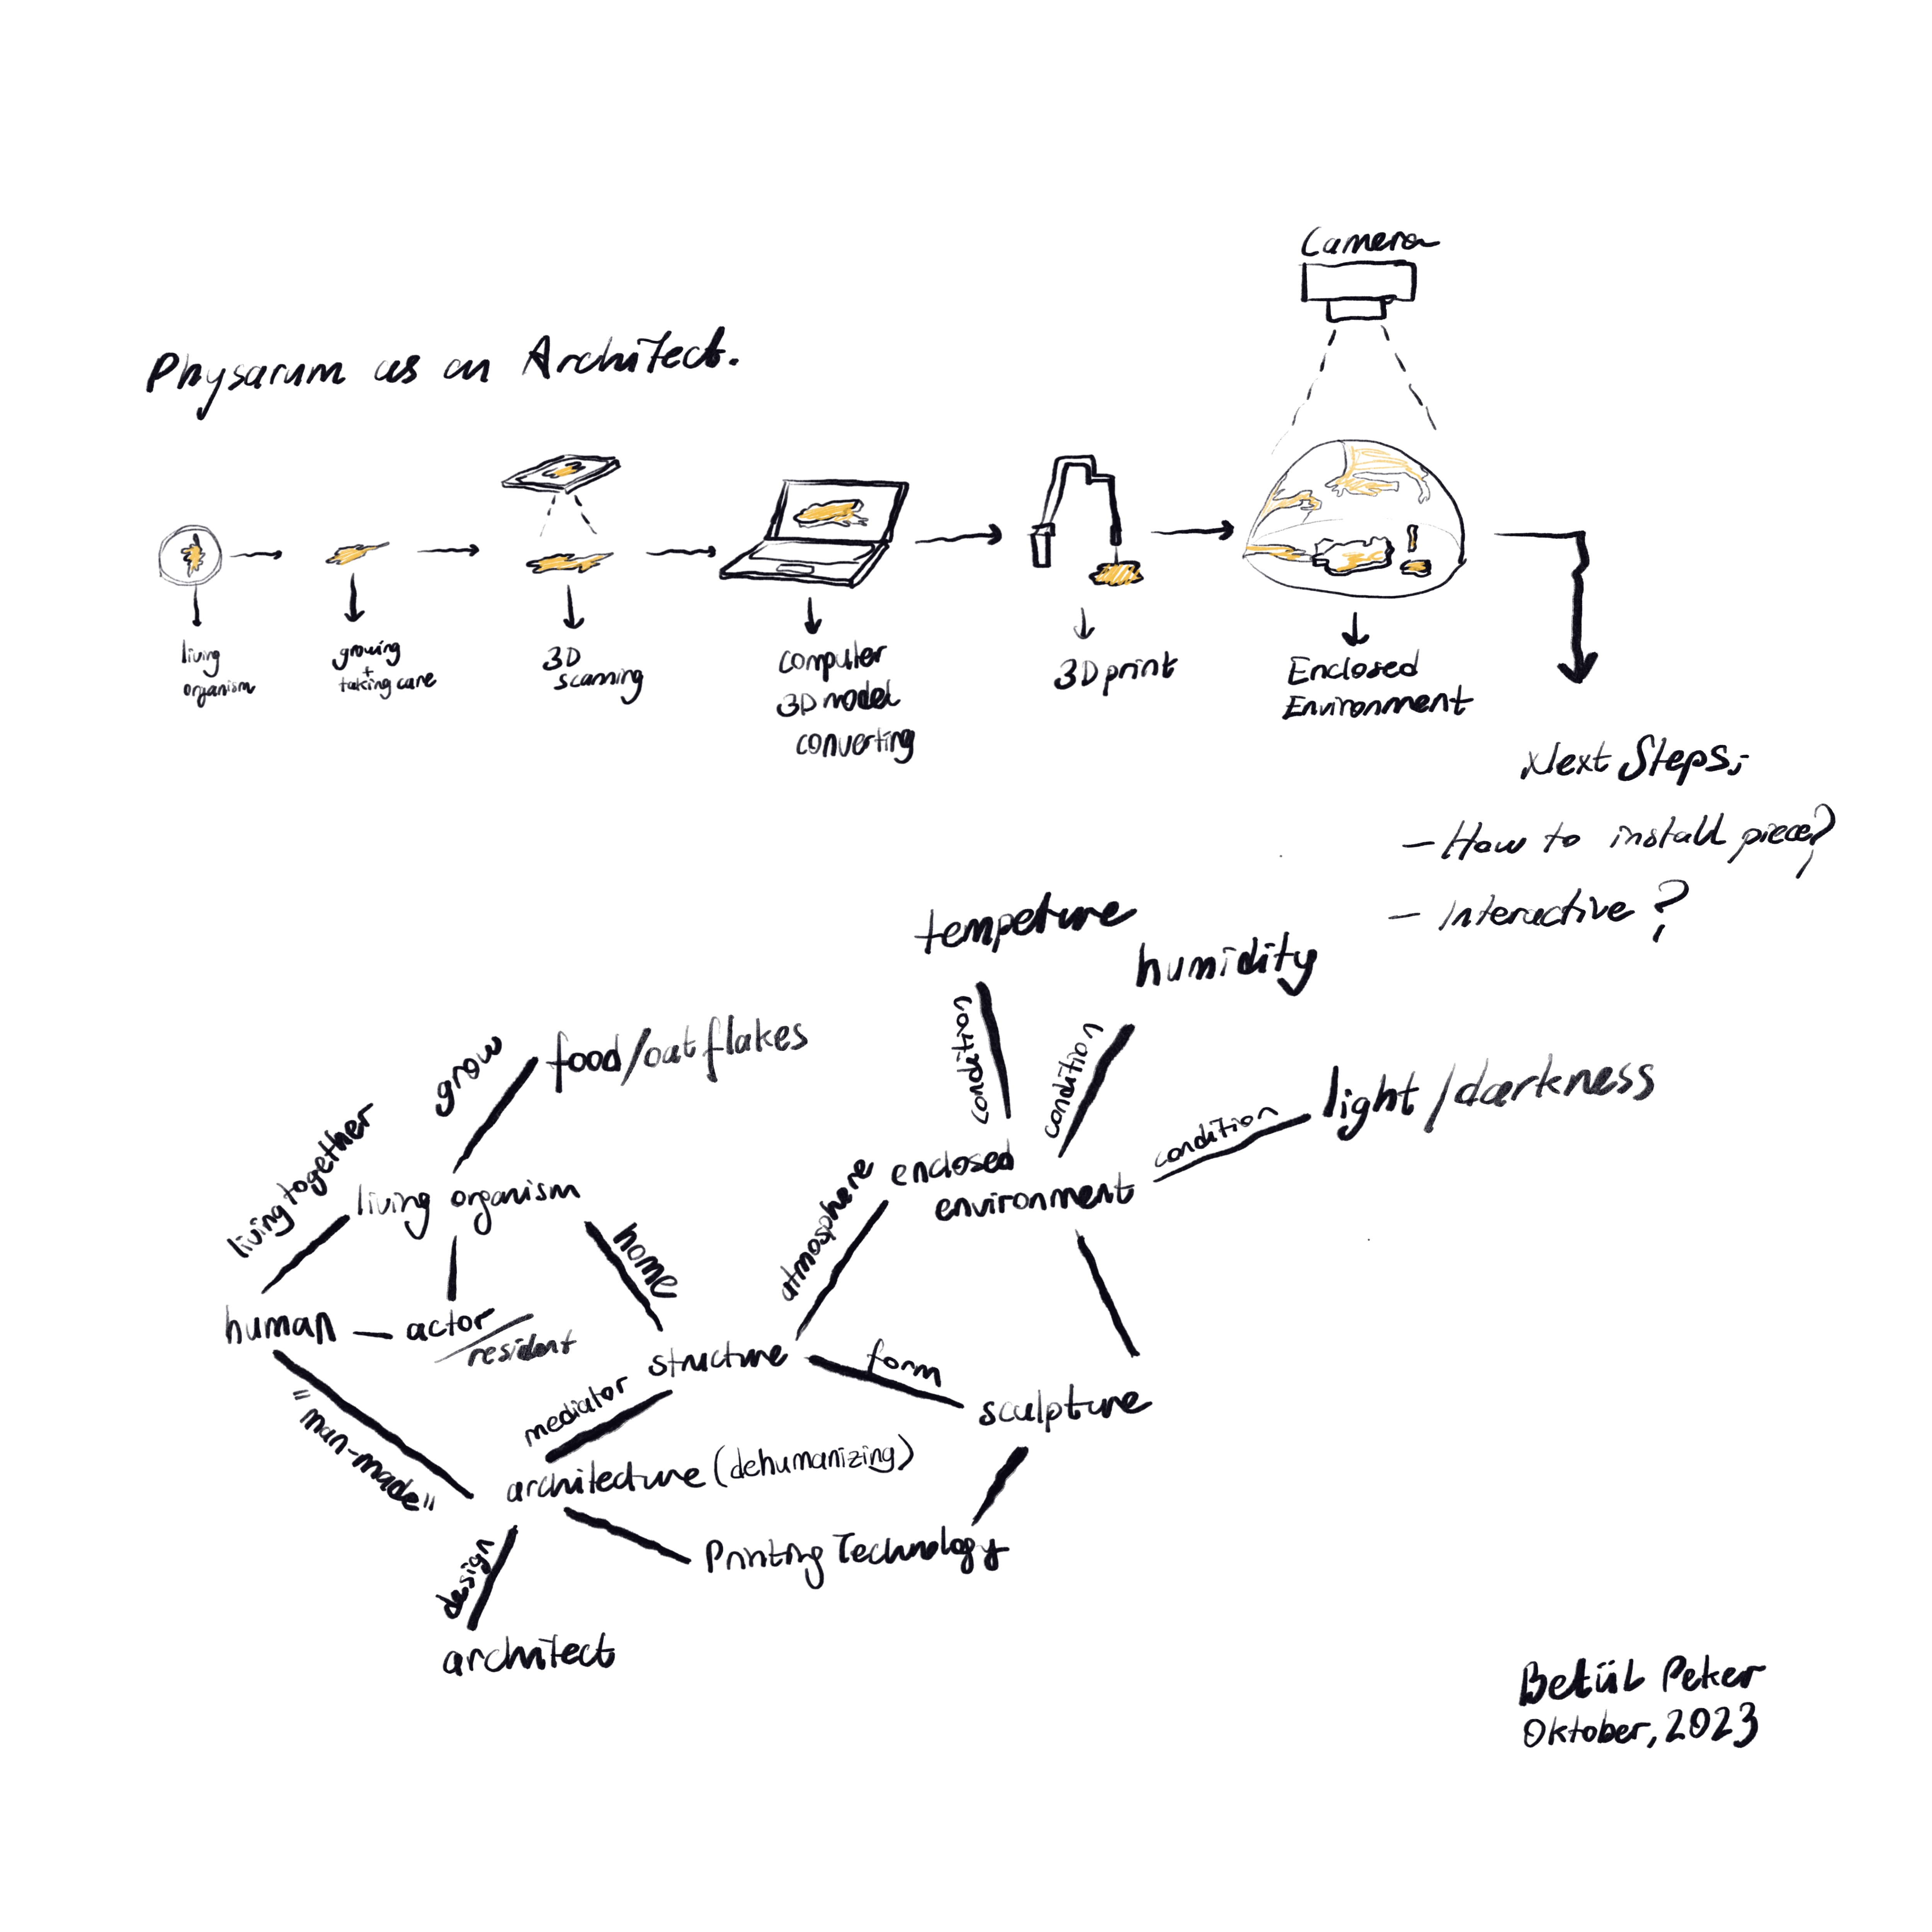 Camera
Physarum as an Architect.
living
organism
growing
+
taking care
3D
scanning
computer
3D model
converting
3D print
Enclosed
Environment
Next Steps;
- How to install piece?
- Interactive ?
tempeture
humidity
condition
condition
condition
light/darkness
grow
food/oatflakes
living together
living organism
home
atmosphere
enclosed
environment
human
actor/
resident
structure
form
sculpture
mediator
"man-made"
architecture (dehumanizing)
Printing Technology
design
architect
Betül Peker
Oktober, 2023